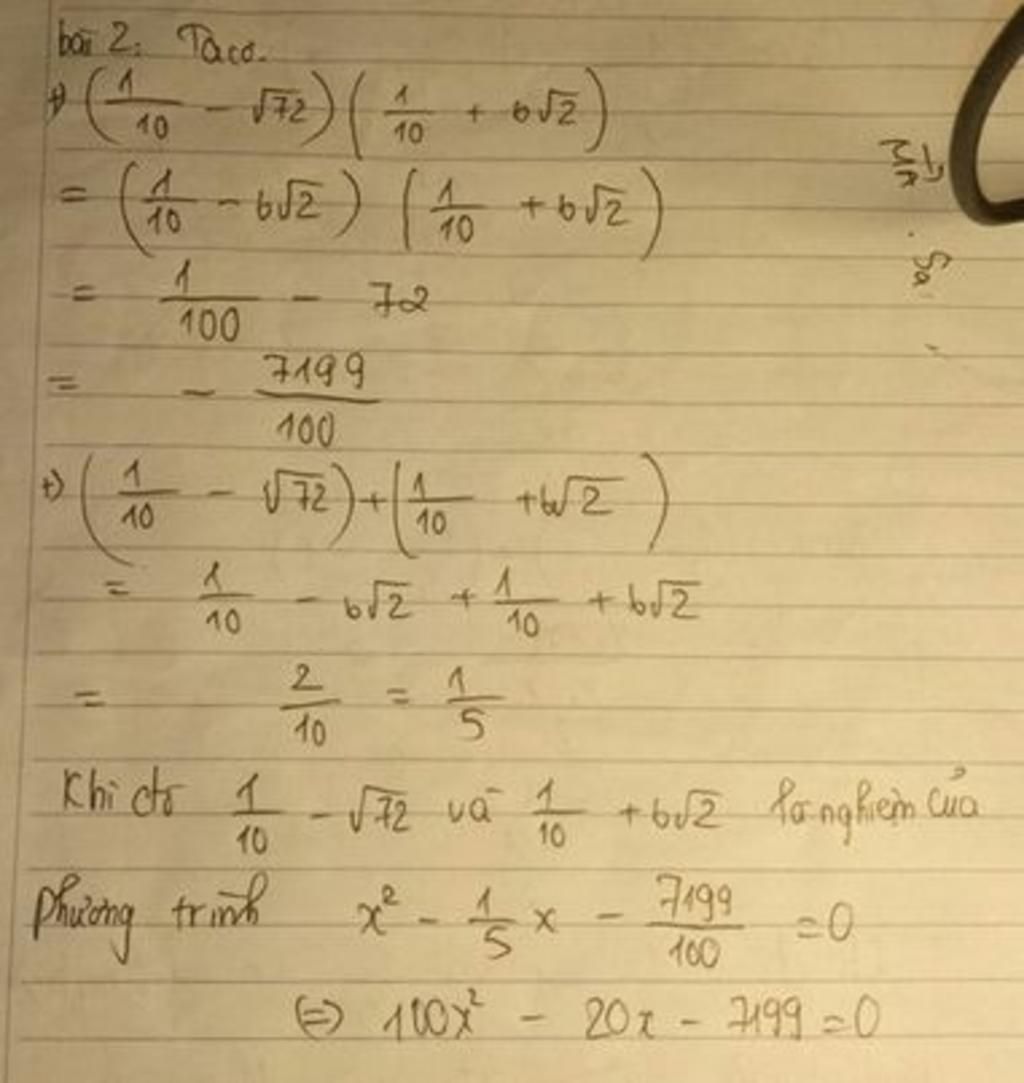 bài 2: Ta có.
+) (1/10 - √72)(1/10 + 6√2)
= (1/10 - 6√2) (1/10 + 6√2)
= 1/100 - 72
= - 7199/100
+) (1/10 - √72) + (1/10 + 6√2)
= 1/10 - 6√2 + 1/10 + 6√2
= 2/10 = 1/5
Khi đó 1/10 - √72 và 1/10 + 6√2 là nghiệm của
phương trình x² - 1/5 x - 7199/100 = 0
(=) 100x² - 20x - 7199 = 0